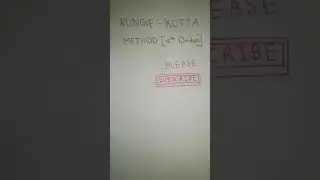 RUNGE - KUTTA
METHOD [4th Order]
PLEASE
SUBSCRIBE